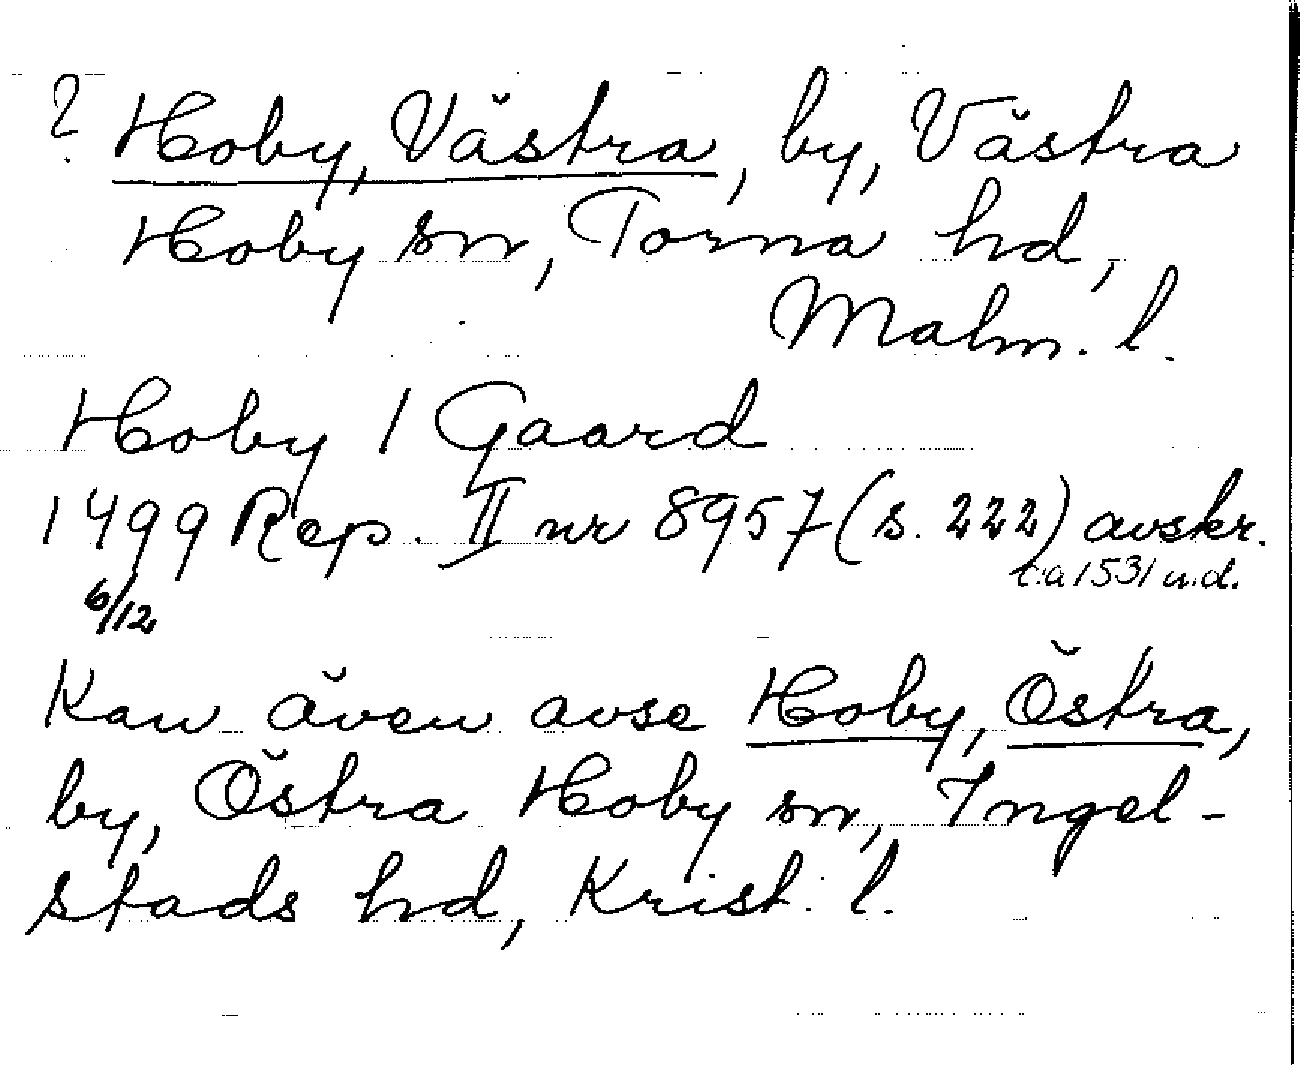 ? Hoby, Västra, by, Västra
Hoby sn, Torna hd,
Malm. l.
Hoby 1 Gaard
1499 Rep. II nr 8957 (s. 222) avskr.
6/12 t.a 1531 u.d.
Kan även avse Hoby, Östra,
by, Östra Hoby sn, Ingel-
stads hd, Krist. l.